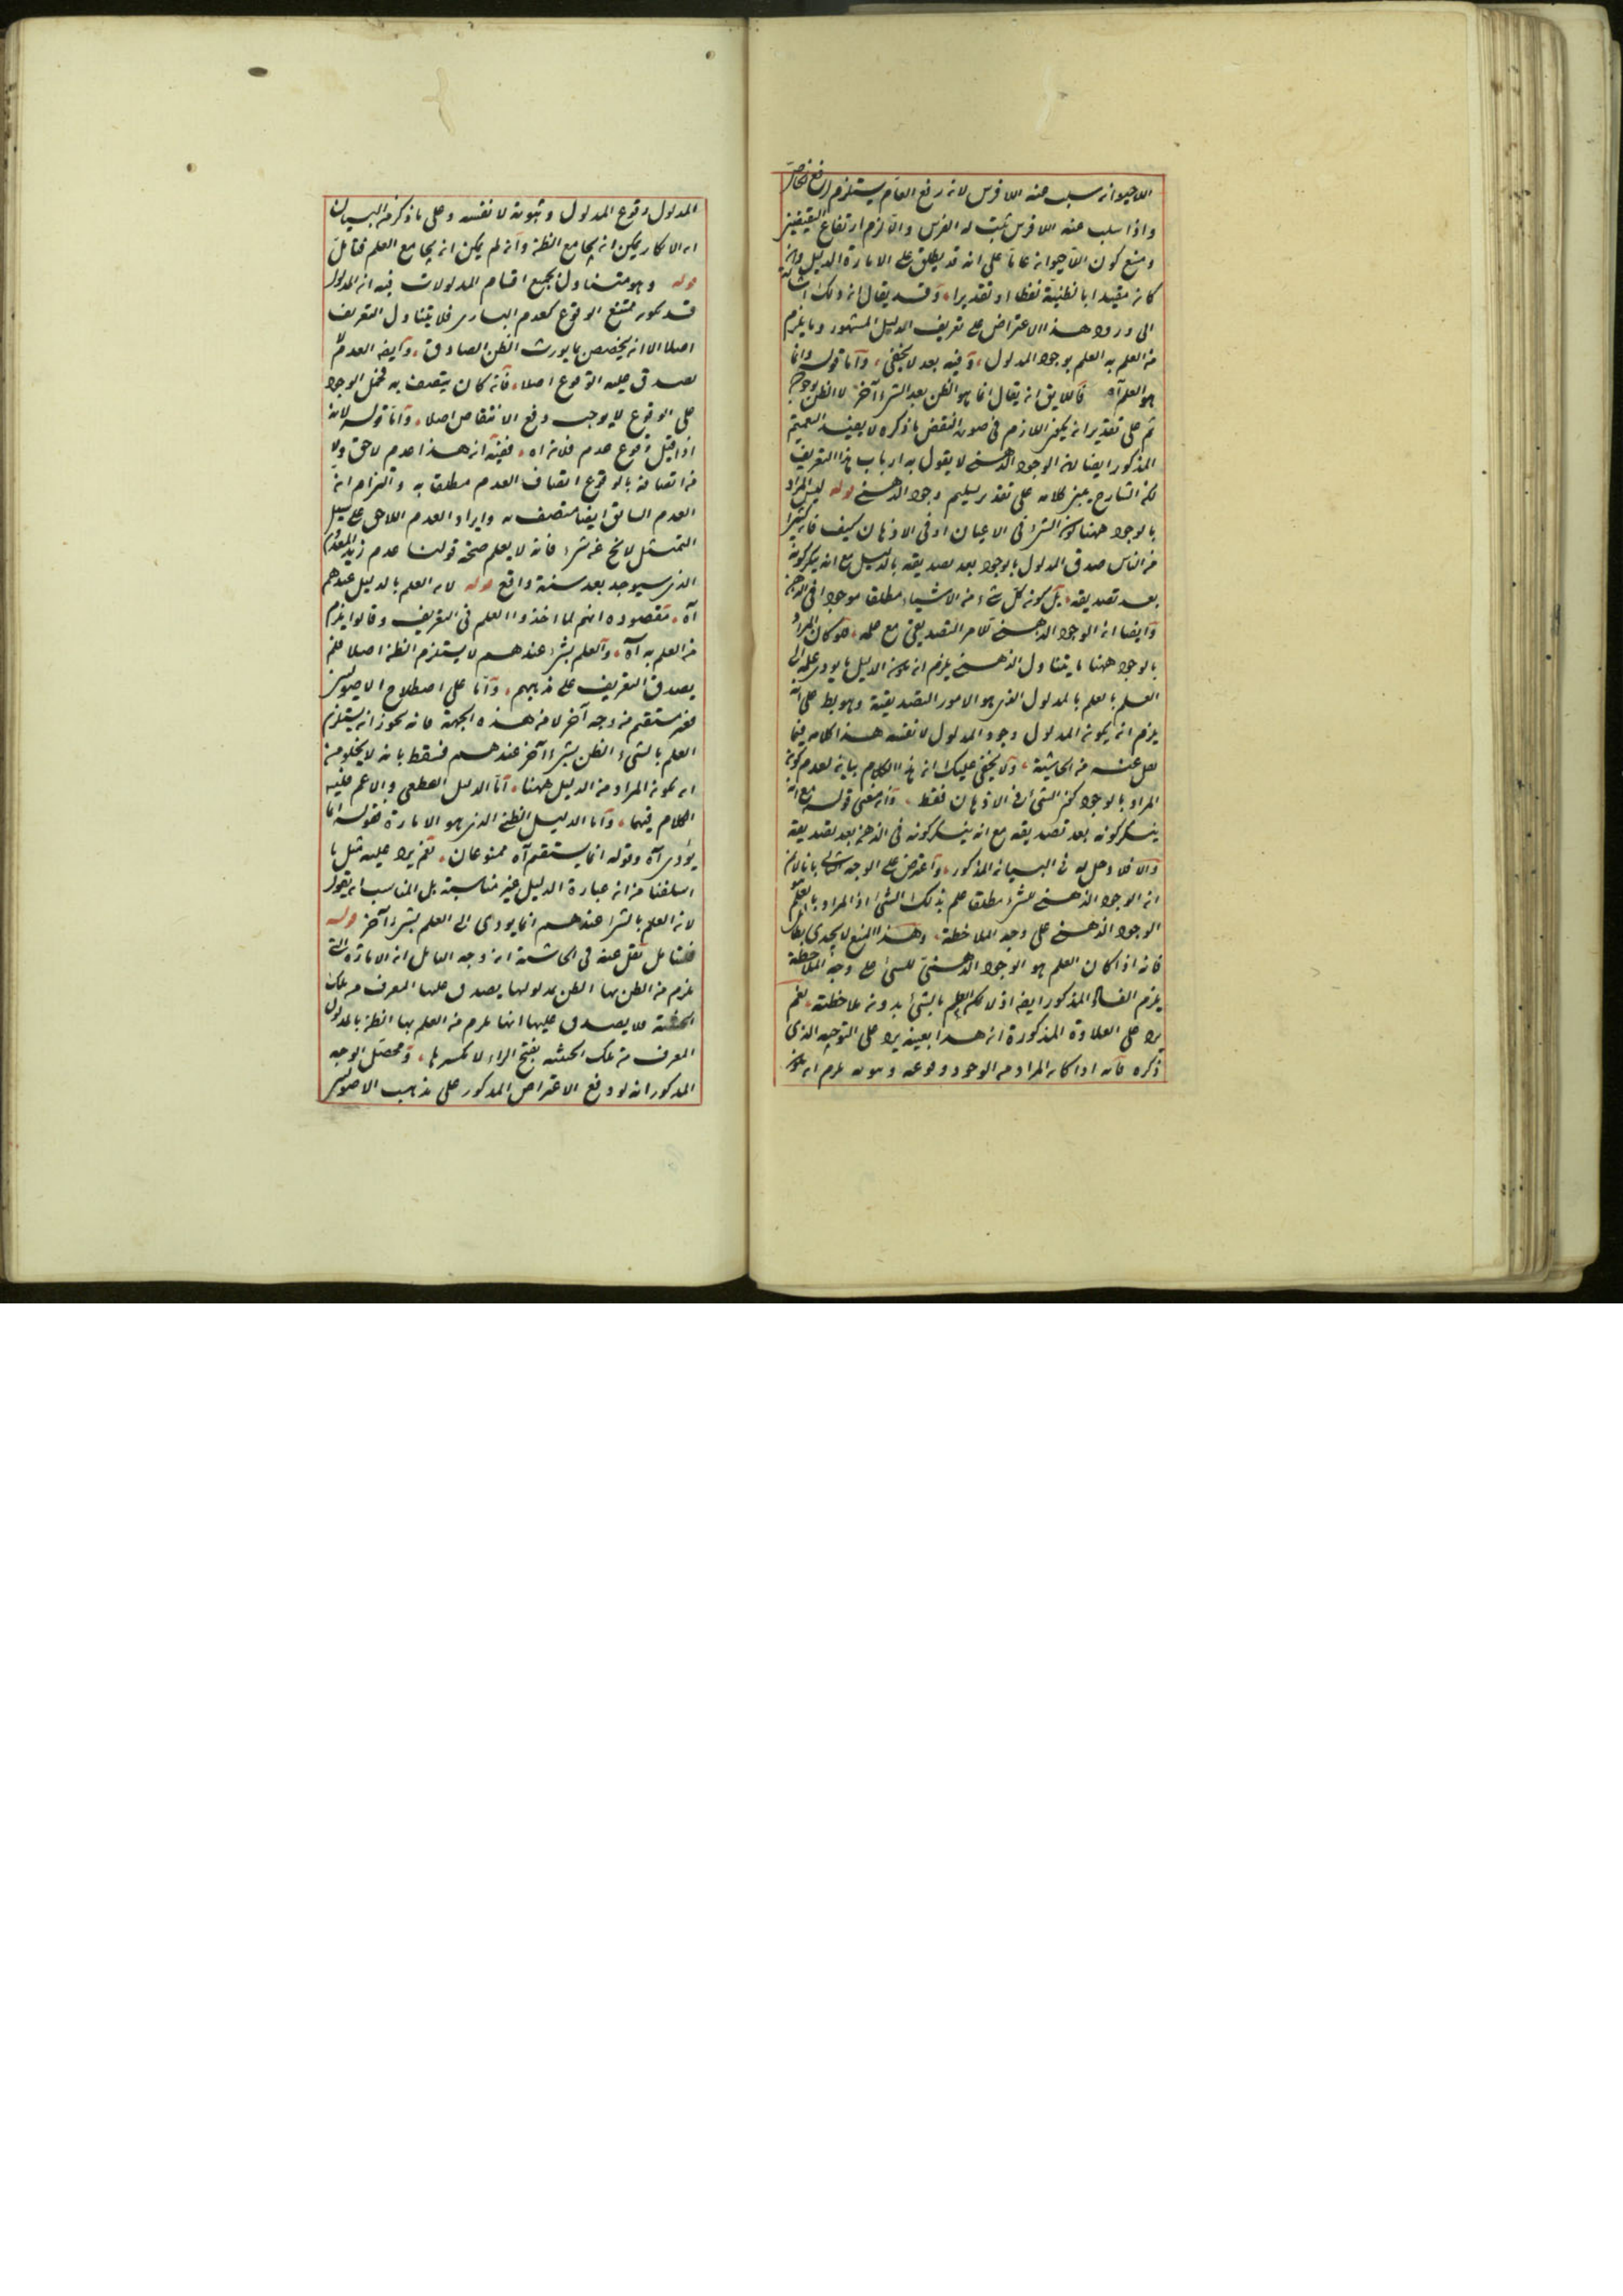 اللاحيوانه سلب عنه اللافرس لانه رفع العام يستلزم رفع الخاص
واذا سلب عنه اللافرس ثبت له الفرس والا لزم ارتفاع النقيضين
ومنع كون اللاحيوانه عاما على انه قد يطلق على الامارة الدليل وانه
كانه مقيدا بالظنية لفظا او تقديرا وقد يقال انه ذلك اشارة
الى ورود هذا الاعتراض على تعريف الدليل المشهور وما يلزم
من العلم به العلم بوجود المدلول وفيه بعد لا يخفى واما قوله وانما
هو العلم آه فاللايق انه يقال انما هو الظن بعد الشئ آخر لا الظن بوجود
ثم على تقدير انه يكون اللازم في صورة النقض ما ذكره لا يفيد التعميم
المذكور ايضا لانه الوجود الذهني لا يقول به ارباب هذا التعريف
لكن الشارح يبنى كلامه على تقدير تسليم وجود الذهني قوله ليس المراد
بالوجود ههنا كونه الشئ في الاعيان او في الاذهان كيف فانه كثيرا
من الناس صدق المدلول بالوجود بعد تصديقه بالدليل مع انه ينكر كونه
بعد تصديقه بل كونه كل شئ من الاشياء مطلقا موجودا في الذهن
وايضا انه الوجود الذهني للامر التصديقي مع علمه فلو كان المراد
بالوجود ههنا ما يتناول الذهني يلزم انه يكونه الدليل ما يودى علمه الى
العلم بالعلم بالمدلول الذى هو الامور التصديقية وهو بط على انه
يلزم انه يكونه المدلول وجود المدلول لا نفسه هذا كلامه فيما
نقل عنه من الحاشية ولا يخفى عليك انه هذا الكلام بيانه لعدم كونه
المراد بالوجود كونه الشئ في الاذهان فقط وانه معنى قوله مع انه
ينكر كونه بعد تصديقه مع انه ينكر كونه في الذهن بعد تصديقه
والا فلا دخل له في البيانه المذكور واعترض على الوجه الثانى بانا لا نم
انه الوجود الذهني للشئ مطلقا علم بذلك الشئ اذ المراد بالعلم هو
الوجود الذهني على وجه الملاحظة وهذا المنع لا يجدى بطائل
فانه اذا كان العلم هو الوجود الذهنى للشئ على وجه الملاحظة
يلزم الفساد المذكور ايضه اذ لا يمكن العلم بالشئ بدونه ملاحظته نعم
يرد على العلاوة المذكورة انه هذا بعينه يرد على التوجيه الذى
ذكره فانه اذا كانه المراد من الوجود وقوعه وثبوته يلزم انه يكونه
المدلول وقوع المدلول وثبوته لا نفسه وعلى ما ذكر من البيانه
انه الانكار يمكن انه يجامع الظن وانه لم يمكن انه يجامع العلم فتامل
قوله وهو متناول لجميع اقسام المدلولات فيه انه المدلول
قد يكونه ممتنع الوقوع كعدم البارى فلا يتناول التعريف
اصلا الا انه يخصص بما يورث الظن الصادق وايضه العدم لا
يصدق عليه الوقوع اصلا فانه كان يتصف به فحمل الوجود
على الوقوع لا يوجب دفع الانتقاض اصلا واما قوله لانه
اذا قيل وقوع عدم فلانه اه ففيه انه هذا عدم لاحق ولا
من اتصافه بالوقوع اتصاف العدم مطلقا به والتزام انه
العدم السابق ايضا متصف به وايراد العدم اللاحق على سبيل
التمثيل لا يخ عن شئ فانه لا يعلم صحة قولنا عدم زيد المعدوم
الذى سيوجد بعد سنة واقع قوله لانه العلم بالدليل عندهم
آه مقصوده انهم لما اخذوا العلم في التعريف وقالوا يلزم
من العلم به آه والعلم بشئ عندهم لا يستلزم الظن اصلا فلم
يصدق التعريف على مذهبهم واما على اصطلاح الاصوليين
فغير مستقيم من وجه آخر لا من هذه الجهة فانه يجوز انه يستلزم
العلم بالشئ الظن بشئ آخر عندهم فسقط بانه لا يخلو من
انه يكونه المراد من الدليل ههنا اما الدليل القطعى والاعم فليس
الكلام فيهما واما الدليل الظنى الذى هو الامارة فقوله انما
يؤدى آه وقوله انما يستقيم آه ممنوعان نعم يرد عليه مثل ما
اسلفنا من انه عبارة الدليل غير مناسبة بل المناسب انه يقول
لانه العلم بالشئ عندهم انما يودى الى العلم بشئ آخر قوله
فتامل نقل عنه في الحاشية انه وجه التامل انه الامارة التى
يلزم من الظن بها الظن بمدلولها يصدق عليها المعرف من تلك
الحيثية ولا يصدق عليها انها يلزم من العلم بها الظن بالمدلول
المعرف من تلك الحيثية بفتح الراء لا بكسرها ومحصل الوجه
المذكور انه لو دفع الاعتراض المذكور على مذهب الاصوليين